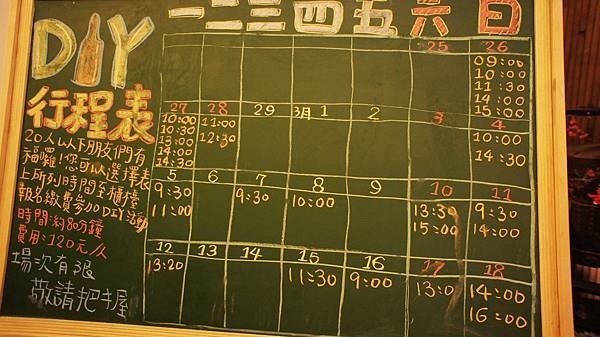 DIY
行程表
20人以下朋友們有
福囉!您可以選擇表
上所列時間至櫃檯
報名繳費參加DIY活動
時間:約80分鐘
費用:120元/人
場次有限
敬請把握
一二三四五六日
25 26
09:00
10:00
11:30
14:00
15:00
27 28 29 3月1 2 3 4
10:00 11:00 10:00
10:30 12:30 14:30
13:00
14:00
14:30
5 6 7 8 9 10 11
9:30 9:30 10:00 13:30 9:30
11:00 15:00 14:00
12 13 14 15 16 17 18
13:20 11:30 9:00 13:0 14:00
16:00